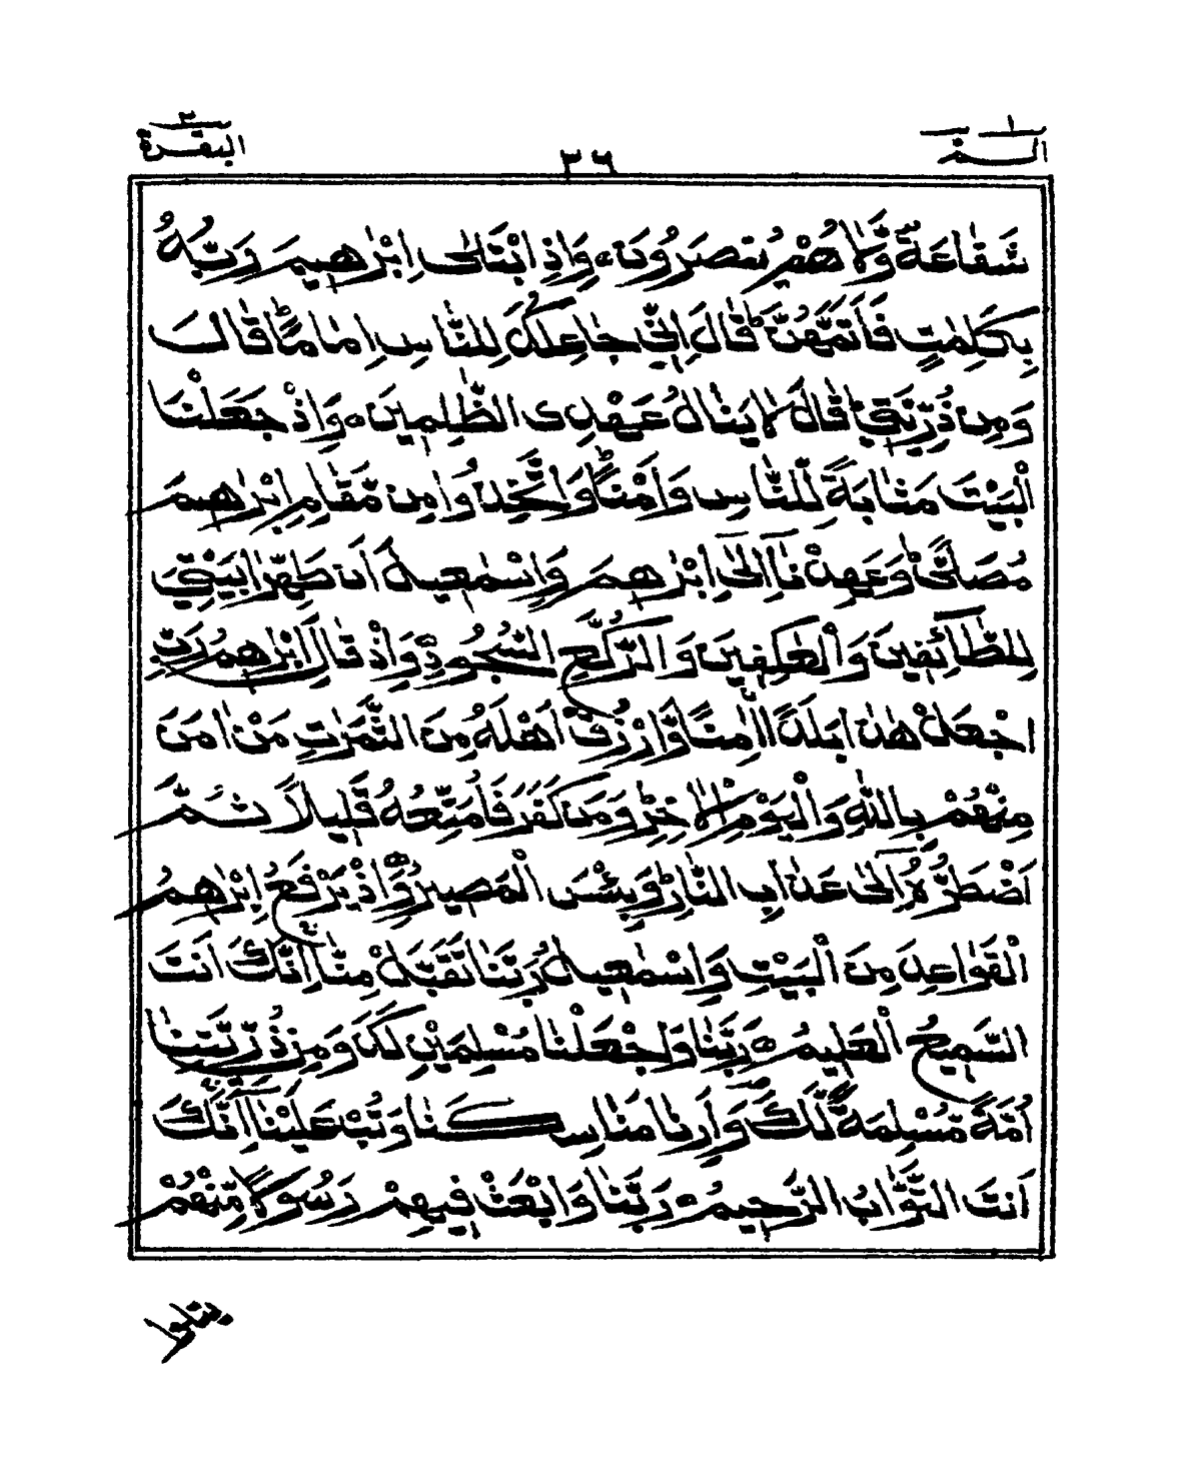 البقرة ٢
٣٦
الـم ١
شَفَاعَةٌ وَّلَا هُمْ يُنصَرُونَ ○ وَاِذِ ابْتَلٰى اِبْرٰهِيمَ رَبُّهٗ
بِكَلِمٰتٍ فَاَتَمَّهُنَّ ؕ قَالَ اِنِّي جَاعِلُكَ لِلنَّاسِ اِمَامًا ؕ قَالَ
وَمِنْ ذُرِّيَّتِيْ ؕ قَالَ لَا يَنَالُ عَهْدِى الظّٰلِمِينَ ○ وَاِذْ جَعَلْنَا
الْبَيْتَ مَثَابَةً لِّلنَّاسِ وَاَمْنًا ؕ وَاتَّخِذُوا مِنْ مَّقَامِ اِبْرٰهِيمَ
مُصَلًّى ؕ وَعَهِدْنَآ اِلٰٓى اِبْرٰهِيمَ وَاِسْمٰعِيلَ اَنْ طَهِّرَا بَيْتِيَ
لِلطَّآئِفِينَ وَالْعٰكِفِينَ وَالرُّكَّعِ السُّجُودِ ○ وَاِذْ قَالَ اِبْرٰهِيمُ رَبِّ
اجْعَلْ هٰذَا بَلَدًا اٰمِنًا وَّارْزُقْ اَهْلَهٗ مِنَ الثَّمَرٰتِ مَنْ اٰمَنَ
مِنْهُمْ بِاللّٰهِ وَالْيَوْمِ الْاٰخِرِ ؕ وَمَنْ كَفَرَ فَاُمَتِّعُهٗ قَلِيلًا ثُمَّ
اَضْطَرُّهٗٓ اِلٰى عَذَابِ النَّارِ ؕ وَبِئْسَ الْمَصِيرُ ○ وَاِذْ يَرْفَعُ اِبْرٰهِيمُ
الْقَوَاعِدَ مِنَ الْبَيْتِ وَاِسْمٰعِيلُ ؕ رَبَّنَا تَقَبَّلْ مِنَّا ؕ اِنَّكَ اَنْتَ
السَّمِيعُ الْعَلِيمُ ○ رَبَّنَا وَاجْعَلْنَا مُسْلِمَيْنِ لَكَ وَمِنْ ذُرِّيَّتِنَآ
اُمَّةً مُّسْلِمَةً لَّكَ وَاَرِنَا مَنَاسِكَنَا وَتُبْ عَلَيْنَا ۚ اِنَّكَ
اَنْتَ التَّوَّابُ الرَّحِيمُ ○ رَبَّنَا وَابْعَثْ فِيهِمْ رَسُولًا مِّنْهُمْ
يتلوا